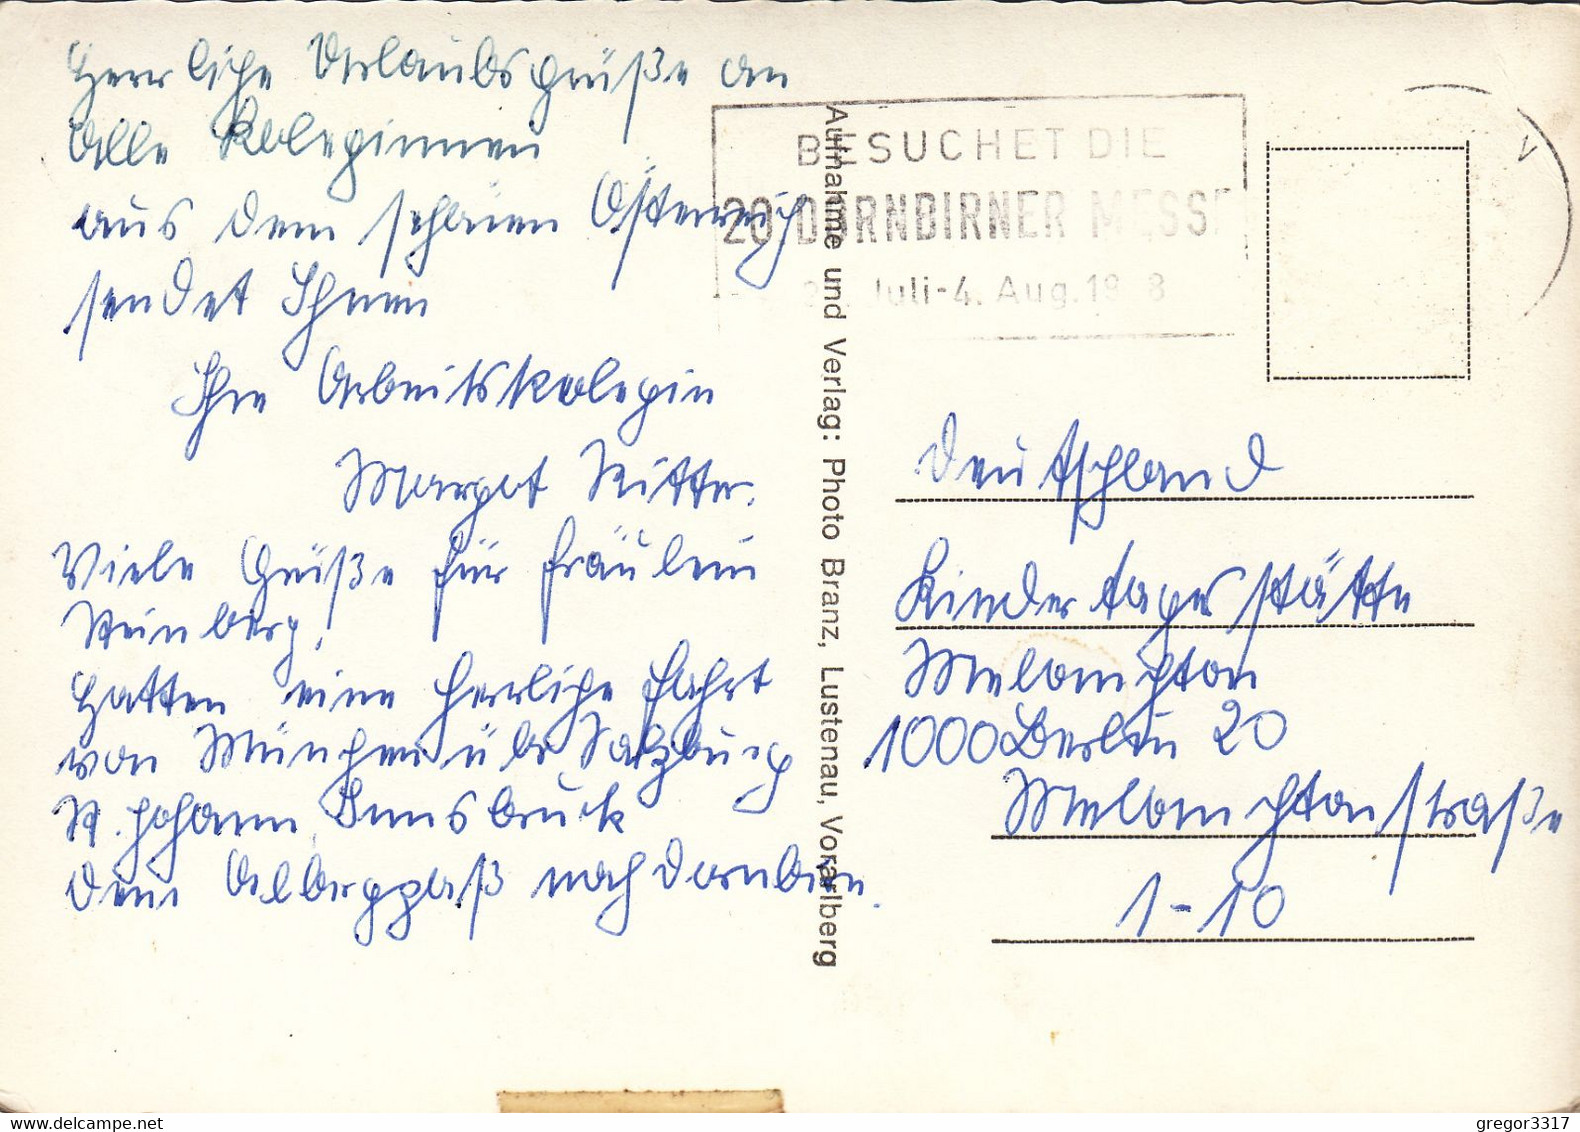 Herrliche Urlaubsgrüße an
Alle Koleginnen
aus dem schönen Österreich
sendet Ihnen
Ihre Arbeitskolegin
Margot Ritter.
Viele Grüße für Fräulein
Steinberg,
Hatten eine herrliche Fahrt
von München über Salzburg
St. Johann, Innsbruck
dem Albergpaß nach Dornbirn.
Aufnahme und Verlag: Photo Branz, Lustenau, Vorarlberg
BESUCHET DIE
20 DORNBIRNER MESSE
Juli-4. Aug. 19 8
Deutschland
Kindertagesstätte
Melanchton
1000 Berlin 20
Melanchtonstraße
1-10
gregor3317
www.delcampe.net